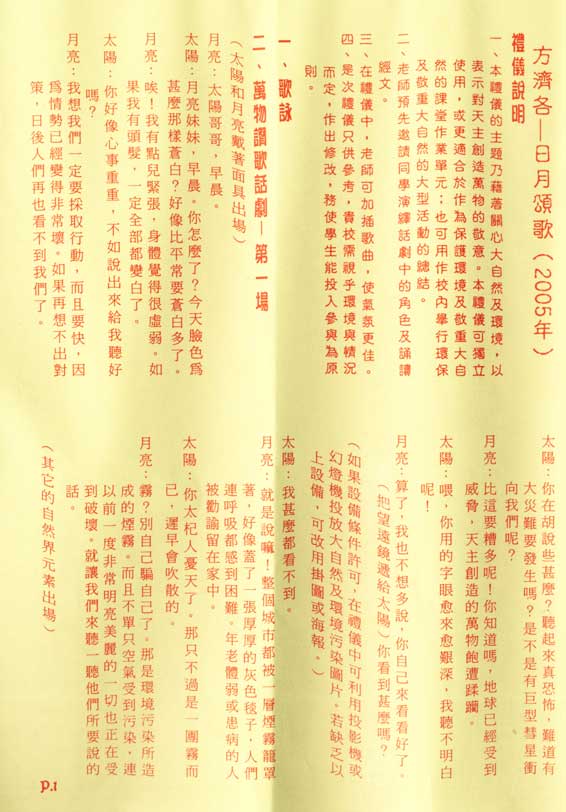 方濟各—日月頌歌(2005年)
禮儀說明
一、本禮儀的主題乃藉著關心大自然及環境，以
表示對天主創造萬物的敬意。本禮儀可獨立
使用，或更適合於作為保護環境及敬重大自
然的課堂作業單元；也可用作校內舉行環保
及敬重大自然的大型活動的總結。
二、老師預先邀請同學演繹話劇中的角色及誦讀
經文。
三、在禮儀中，老師可加插歌曲，使氣氛更佳。
四、是次禮儀只供參考，貴校需視乎環境與情況
而定，作出修改，務使學生能投入參與為原
則。
一、歌詠
二、萬物讚歌話劇—第一場
(太陽和月亮戴著面具出場)
月亮：太陽哥哥，早晨。
太陽：月亮妹妹，早晨。你怎麼了？今天臉色為
甚麼那樣蒼白？好像比平常要蒼白多了。
月亮：唉！我有點兒緊張，身體覺得很虛弱。如
果我有頭髮，一定全部都變白了。
太陽：你好像心事重重，不如說出來給我聽好
嗎？
月亮：我想我們一定要採取行動，而且要快，因
為情勢已經變得非常壞。如果再想不出對
策，日後人們再也看不到我們了。
太陽：你在胡說些甚麼？聽起來真恐怖，難道有
大災難要發生嗎？是不是有巨型彗星衝
向我們呢？
月亮：比這要糟多呢！你知道嗎，地球已經受到
威脅，天主創造的萬物飽遭蹂躪。
太陽：喂，你用的字眼愈來愈艱深，我聽不明白
呢！
月亮：算了，我也不想多說，你自己來看看好了。
(把望遠鏡遞給太陽)你看到甚麼嗎？
(如果設備條件許可，在禮儀中可利用投影機或
幻燈機投放大自然及環境污染圖片。若缺乏以
上設備，可改用掛圖或海報。)
太陽：我甚麼都看不到。
月亮：就是說嘛！整個城市都被一層煙霧籠罩
著，好像蓋了一張厚厚的灰色毯子，人們
連呼吸都感到困難。年老體弱或患病的人
被勸諭留在家中。
太陽：你太杞人憂天了。那只不過是一團霧而
已，遲早會吹散的。
月亮：霧？別自己騙自己了。那是環境污染所造
成的煙霧。而且不單只空氣受到污染，連
以前一度非常明亮美麗的一切也正在受
到破壞。就讓我們來聽一聽他們所要說的
話。
(其它的自然界元素出場)
P.1